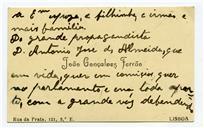 a Exma esposa, e filhinhos e irmãs e
mais familia
Do grande propagandista
D. Antonio José de Almeida, que
João Gonçalves Ferrão
em vida, quer em comicios quer
no parlamento, e em toda a parte
com a grande voz defendeu
Rua da Prata, 121, 2.º E.
LISBOA